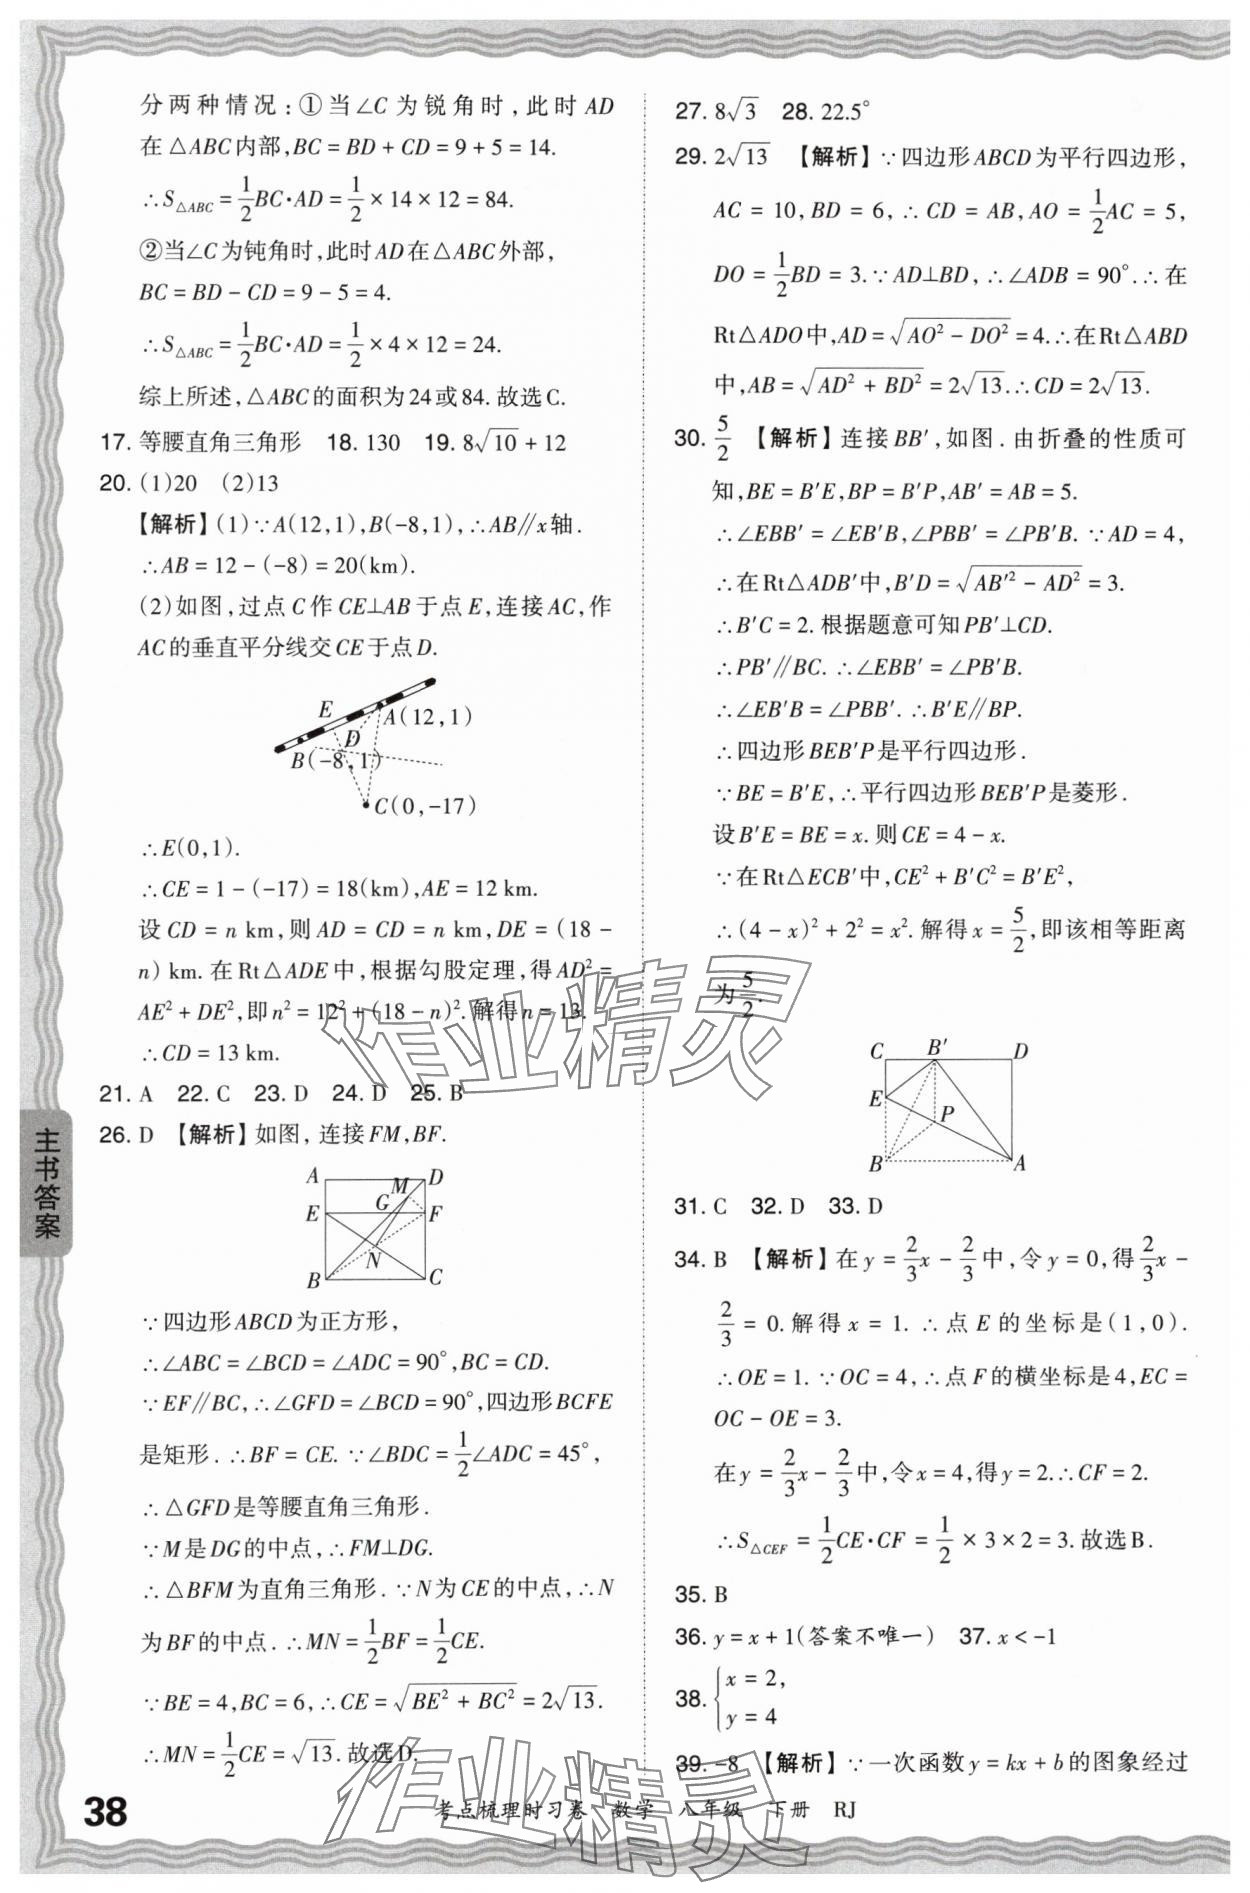 分两种情况:①当∠C为锐角时,此时AD
在△ABC内部,BC=BD+CD=9+5=14.
∴S△ABC=1/2BC·AD=1/2×14×12=84.
②当∠C为钝角时,此时AD在△ABC外部,
BC=BD-CD=9-5=4.
∴S△ABC=1/2BC·AD=1/2×4×12=24.
综上所述,△ABC的面积为24或84.故选C.
17.等腰直角三角形 18.130 19.8√10+12
20.(1)20 (2)13
【解析】(1)∵A(12,1),B(-8,1),∴AB∥x轴.
∴AB=12-(-8)=20(km).
(2)如图,过点C作CE⊥AB于点E,连接AC,作
AC的垂直平分线交CE于点D.
E
A(12,1)
D
B(-8,1)
C(0,-17)
∴E(0,1).
∴CE=1-(-17)=18(km),AE=12 km.
设CD=n km,则AD=CD=n km,DE=(18-
n)km.在Rt△ADE中,根据勾股定理,得AD²=
AE²+DE²,即n²=12²+(18-n)².解得n=13.
∴CD=13 km.
21.A 22.C 23.D 24.D 25.B
26.D 【解析】如图,连接FM,BF.
A M D
G
E F
N
B C
∵四边形ABCD为正方形,
∴∠ABC=∠BCD=∠ADC=90°,BC=CD.
∵EF∥BC,∴∠GFD=∠BCD=90°,四边形BCFE
是矩形.∴BF=CE.∵∠BDC=1/2∠ADC=45°,
∴△GFD是等腰直角三角形.
∵M是DG的中点,∴FM⊥DG.
∴△BFM为直角三角形.∵N为CE的中点,∴N
为BF的中点.∴MN=1/2BF=1/2CE.
∵BE=4,BC=6,∴CE=√(BE²+BC²)=2√13.
∴MN=1/2CE=√13.故选D.
27.8√3 28.22.5°
29.2√13 【解析】∵四边形ABCD为平行四边形,
AC=10,BD=6,∴CD=AB,AO=1/2AC=5,
DO=1/2BD=3.∵AD⊥BD,∴∠ADB=90°.∴在
Rt△ADO中,AD=√(AO²-DO²)=4.∴在Rt△ABD
中,AB=√(AD²+BD²)=2√13.∴CD=2√13.
30.5/2 【解析】连接BB′,如图.由折叠的性质可
知,BE=B′E,BP=B′P,AB′=AB=5.
∴∠EBB′=∠EB′B,∠PBB′=∠PB′B.∵AD=4,
∴在Rt△ADB′中,B′D=√(AB′²-AD²)=3.
∴B′C=2.根据题意可知PB′⊥CD.
∴PB′∥BC.∴∠EBB′=∠PB′B.
∴∠EB′B=∠PBB′.∴B′E∥BP.
∴四边形BEB′P是平行四边形.
∵BE=B′E,∴平行四边形BEB′P是菱形.
设B′E=BE=x.则CE=4-x.
∵在Rt△ECB′中,CE²+B′C²=B′E²,
∴(4-x)²+2²=x².解得x=5/2,即该相等距离
为5/2.
C B′ D
E
P
B A
31.C 32.D 33.D
34.B 【解析】在y=2/3x-2/3中,令y=0,得2/3x-
2/3=0.解得x=1.∴点E的坐标是(1,0).
∴OE=1.∵OC=4,∴点F的横坐标是4,EC=
OC-OE=3.
在y=2/3x-2/3中,令x=4,得y=2.∴CF=2.
∴S△CEF=1/2CE·CF=1/2×3×2=3.故选B.
35.B
36.y=x+1(答案不唯一) 37.x<-1
38.{x=2,
y=4
39.-8 【解析】∵一次函数y=kx+b的图象经过
主书答案
38
考点梳理时习卷 数学 八年级 下册 RJ
作业精灵
作业精灵